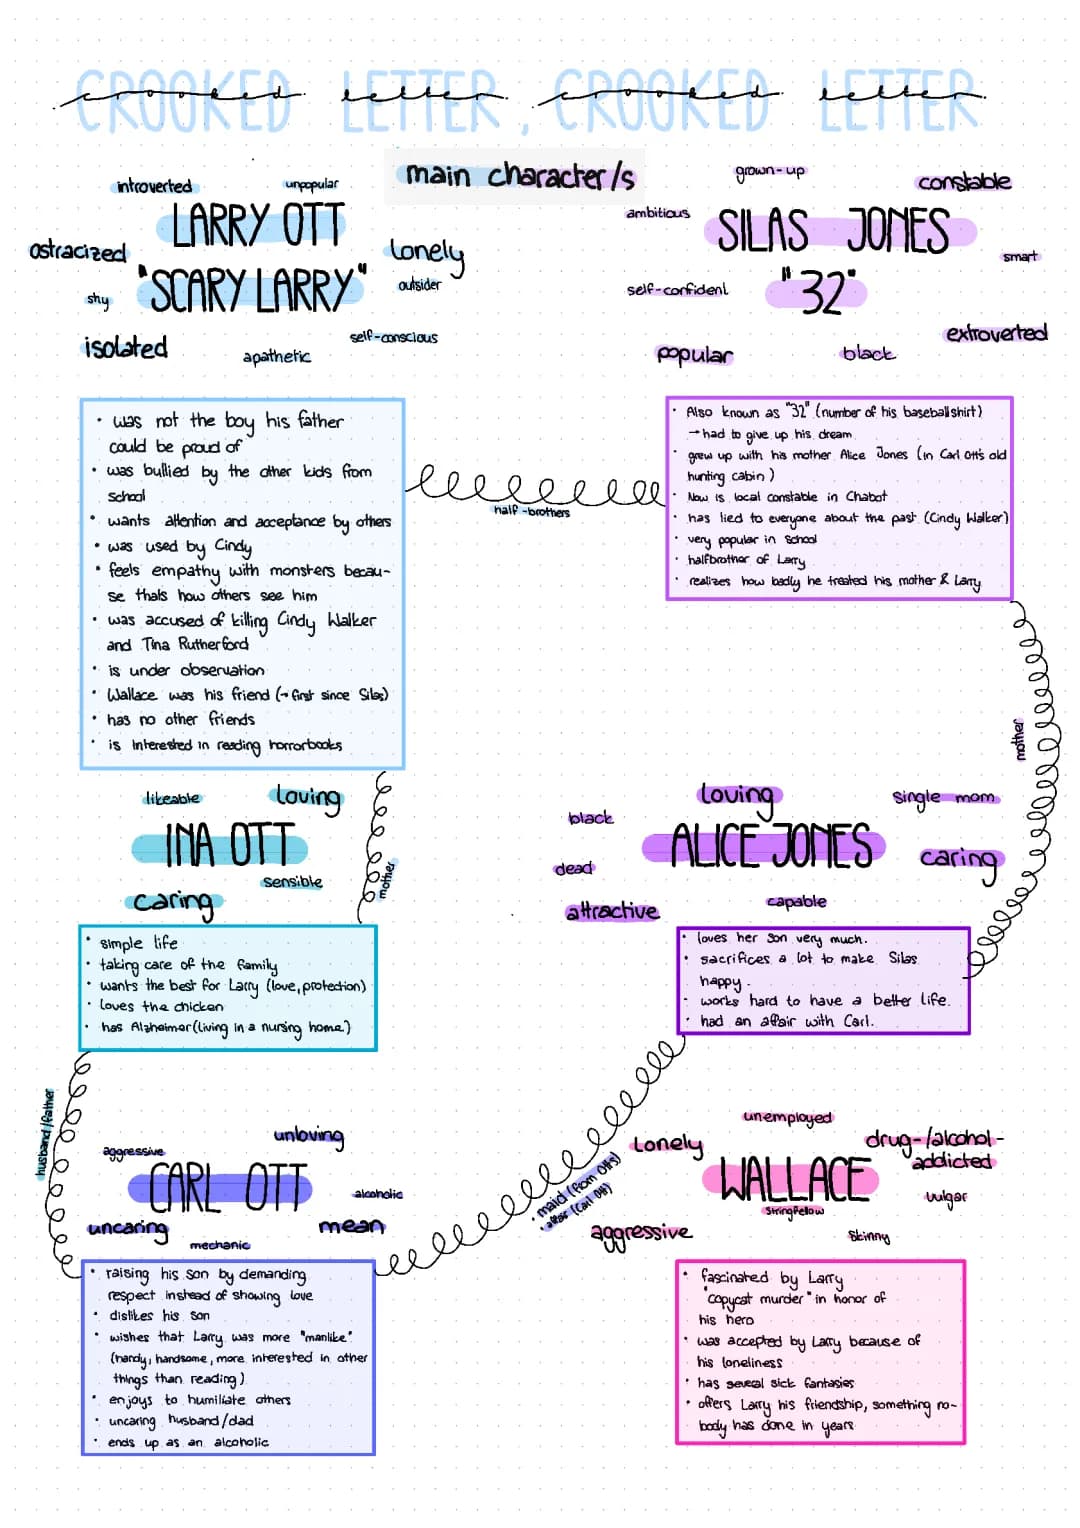 CROOKED LETTER, CROOKED LETTER
crooked letter, crooked letter
main character/s
introverted
unpopular
LARRY OTT
ostracized
lonely
"SCARY LARRY"
outsider
shy
self-conscious
isolated
apathetic
grown-up
constable
ambitious
SILAS JONES
smart
self-confident
"32"
extroverted
popular
black
• was not the boy his father
could be proud of
• was bullied by the other kids from
school
• wants attention and acceptance by others
• was used by Cindy
• feels empathy with monsters becau-
se thats how others see him
• was accused of killing Cindy Walker
and Tina Rutherford
• is under observation
• Wallace was his friend (→ first since Silas)
• has no other friends
• is interested in reading horrorbooks
half-brothers
• Also known as "32" (number of his baseballshirt)
→ had to give up his dream
• grew up with his mother Alice Jones (in Carl Ott's old
hunting cabin)
• Now is local constable in Chabot
• has lied to everyone about the past (Cindy Walker)
• very popular in school
• halfbrother of Larry
• realizes how badly he treated his mother & Larry
mother
likeable
loving
INA OTT
sensible
caring
mother
loving
single mom
black
ALICE JONES
caring
dead
capable
attractive
• simple life
• taking care of the family
• wants the best for Larry (love, protection)
• loves the chicken
• has Alzheimer (living in a nursing home)
• loves her son very much.
• sacrifices a lot to make Silas
happy.
• works hard to have a better life.
• had an affair with Carl.
husband/father
unloving
aggressive
CARL OTT
alcoholic
uncaring
mean
mechanic
• maid (from Otts)
• affair (Carl Ott)
unemployed
lonely
drug-/alcohol-
addicted
WALLACE
vulgar
Stringfellow
aggressive
skinny
• raising his son by demanding
respect instead of showing love
• dislikes his son
• wishes that Larry was more "manlike"
(handy, handsome, more interested in other
things than reading)
• enjoys to humiliate others
• uncaring husband/dad
• ends up as an alcoholic
• fascinated by Larry
"copycat murder" in honor of
his hero
• was accepted by Larry because of
his loneliness
• has several sick fantasies
• offers Larry his friendship, something no-
body has done in years